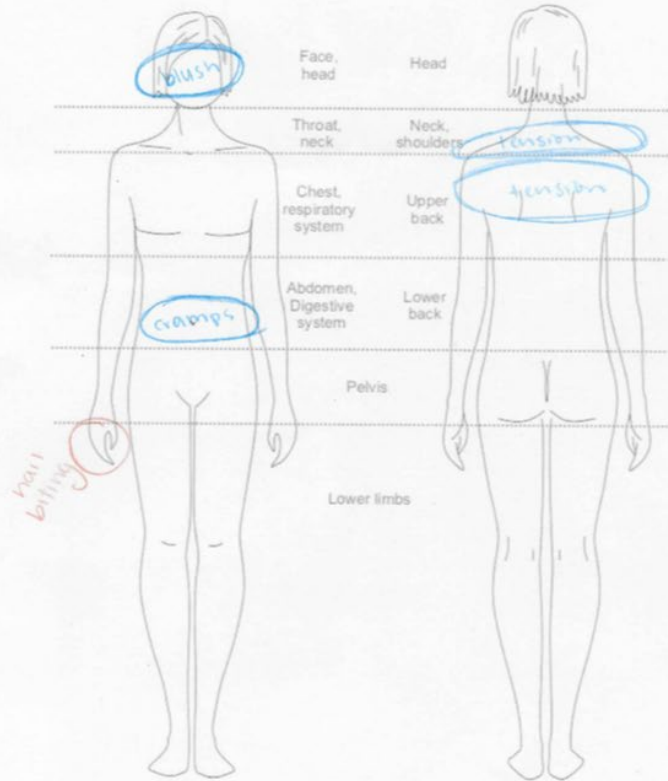 blush
Face,
head
Head
Throat,
neck
Neck,
shoulders
tension
Chest,
respiratory
system
Upper
back
tension
cramps
Abdomen,
Digestive
system
Lower
back
Pelvis
nail
biting
Lower limbs